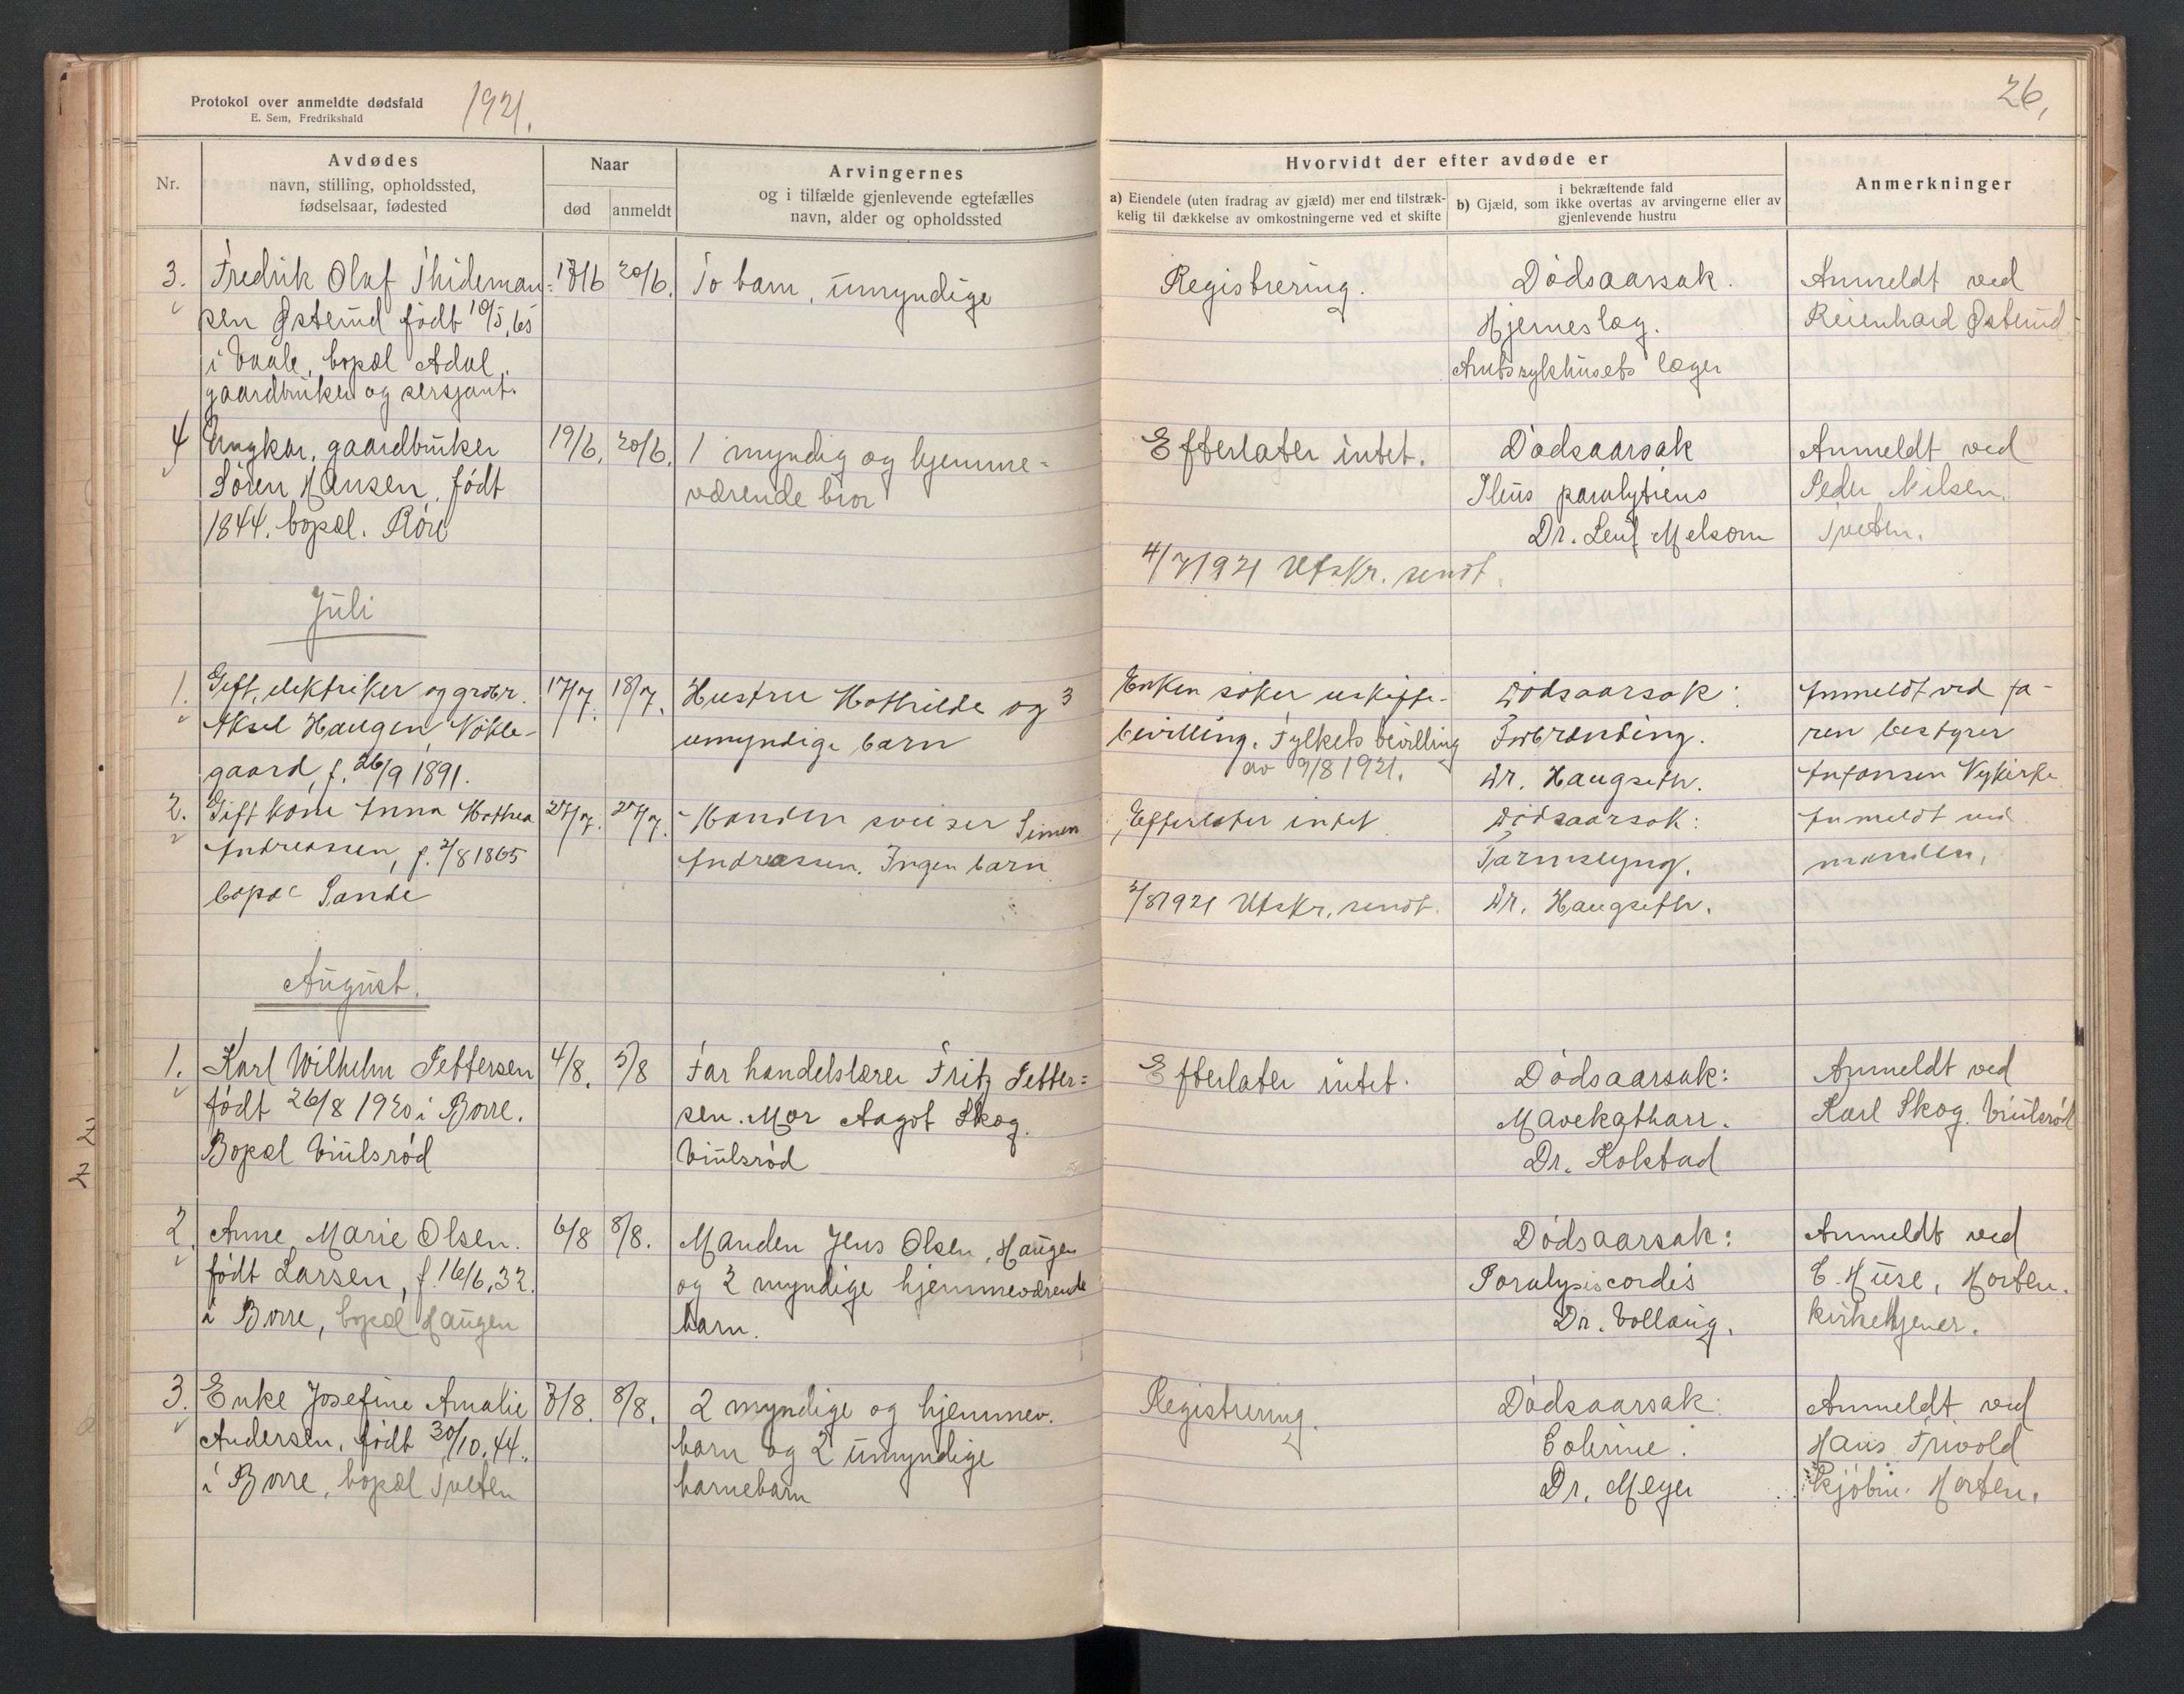 Protokol over anmeldte dødsfald
E. Sem, Fredrikshald
1921.
26,
Nr.
Avdødes
navn, stilling, opholdssted,
fødselsaar, fødested
Naar
død
anmeldt
Arvingernes
og i tilfælde gjenlevende egtefælles
navn, alder og opholdssted
Hvorvidt der efter avdøde er
a) Eiendele (uten fradrag av gjæld) mer end tilstræk-
kelig til dækkelse av omkostningerne ved et skifte
i bekræftende fald
b) Gjæld, som ikke overtas av arvingerne eller av
gjenlevende hustru
Anmerkninger
3. Fredrik Olaf Thideman- 17/6 20/6. To barn, umyndige
sen Østerud født 10/5, 65
i Vaale, bopæl Adal.
gaardbruker og sersjant.
Registrering.
Dødsaarsak.
Hjerneslag.
Amtssykhusets læger
Anmeldt ved
Reienhard Østerud
4 Ungkar, gaardbruker 19/6. 20/6. 1 myndig og hjemme-
Søren Hansen, født værende bror
1844. bopæl. Røre
Efterlater intet.
4/7 1921 Utskr. sendt.
Dødsaarsak
Ileus paralyticus
Dr. Leif Melsom
Anmeldt ved
Peder Nilsen.
Tveten.
Juli
1. Gift, elektriker og grdbr. 17/7. 18/7. Hustru Mathilde og 3
Aksel Haugen, Nøkle- umyndige barn
gaard, f. 26/9 1891.
Enken søker uskifte-
bevilling. Fylkets bevilling
av 9/8 1921.
Dødsaarsak:
Forbrænding.
Dr. Haugseth.
Anmeldt ved fa-
ren bestyrer
Antonsen Nykirke
2. Gift kone Anna Mathea 27/7. 27/7. Manden sveiser Simen
Andreassen, f. 2/8 1865 Andreassen. Ingen barn
bopæl Sande
Efterlater intet
2/8 1921 Utskr. sendt.
Dødsaarsak:
Tarmslyng.
Dr. Haugseth.
Anmeldt ved
manden.
August.
1. Karl Wilhelm Pettersen 4/8. 5/8 Far handelslærer Fritz Petter-
født 26/8 1920 i Borre. sen. Mor Aagot Skog.
Bopæl Viulsrød Viulsrød
Efterlater intet.
Dødsaarsak:
Mavekatharr.
Dr. Kolstad
Anmeldt ved
Karl Skog. Viulsrød
2. Anne Marie Olsen. 6/8 8/8. Manden Jens Olsen, Haugen
født Larsen, f. 16/6, 32. og 2 myndige hjemmeværende
i Borre, bopæl Haugen barn.
Dødsaarsak:
Paralysis cordis
Dr. Vollaug.
Anmeldt ved
C. Huse, Horten.
kirketjener.
3. Enke Josefine Amalie 7/8. 8/8. 2 myndige og hjemmev.
Andersen, født 30/10, 44. barn og 2 umyndige
i Borre, bopæl Tveten barnebarn
Registrering.
Dødsaarsak:
Colerine.
Dr. Meyer
Anmeldt ved
Hans Frivold
Kjøbm. Horten.
2
2